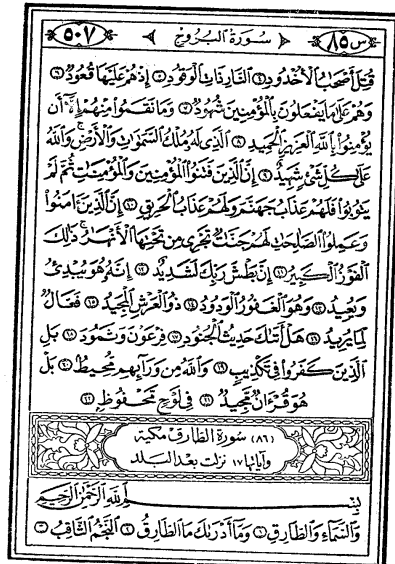 س ٨٥ سورة البروج ٥٠٧
قُتِلَ أَصْحَٰبُ ٱلْأُخْدُودِ ٤ ٱلنَّارِ ذَاتِ ٱلْوَقُودِ ٥ إِذْ هُمْ عَلَيْهَا قُعُودٌ ٦
وَهُمْ عَلَىٰ مَا يَفْعَلُونَ بِٱلْمُؤْمِنِينَ شُهُودٌ ٧ وَمَا نَقَمُوا۟ مِنْهُمْ إِلَّآ أَن
يُؤْمِنُوا۟ بِٱللَّهِ ٱلْعَزِيزِ ٱلْحَمِيدِ ٨ ٱلَّذِى لَهُۥ مُلْكُ ٱلسَّمَٰوَٰتِ وَٱلْأَرْضِ وَٱللَّهُ
عَلَىٰ كُلِّ شَىْءٍ شَهِيدٌ ٩ إِنَّ ٱلَّذِينَ فَتَنُوا۟ ٱلْمُؤْمِنِينَ وَٱلْمُؤْمِنَٰتِ ثُمَّ لَمْ
يَتُوبُوا۟ فَلَهُمْ عَذَابُ جَهَنَّمَ وَلَهُمْ عَذَابُ ٱلْحَرِيقِ ١٠ إِنَّ ٱلَّذِينَ ءَامَنُوا۟
وَعَمِلُوا۟ ٱلصَّٰلِحَٰتِ لَهُمْ جَنَّٰتٌ تَجْرِى مِن تَحْتِهَا ٱلْأَنْهَٰرُ ذَٰلِكَ
ٱلْفَوْزُ ٱلْكَبِيرُ ١١ إِنَّ بَطْشَ رَبِّكَ لَشَدِيدٌ ١٢ إِنَّهُۥ هُوَ يُبْدِئُ
وَيُعِيدُ ١٣ وَهُوَ ٱلْغَفُورُ ٱلْوَدُودُ ١٤ ذُو ٱلْعَرْشِ ٱلْمَجِيدُ ١٥ فَعَّالٌ
لِّمَا يُرِيدُ ١٦ هَلْ أَتَىٰكَ حَدِيثُ ٱلْجُنُودِ ١٧ فِرْعَوْنَ وَثَمُودَ ١٨ بَلِ
ٱلَّذِينَ كَفَرُوا۟ فِى تَكْذِيبٍ ١٩ وَٱللَّهُ مِن وَرَآئِهِم مُّحِيطٌۢ ٢٠ بَلْ
هُوَ قُرْءَانٌ مَّجِيدٌ ٢١ فِى لَوْحٍ مَّحْفُوظٍۭ ٢٢
(٨٦) سورة الطارق مكية
وآياتها ١٧ نزلت بعد البلد
بِسْمِ ٱللَّهِ ٱلرَّحْمَٰنِ ٱلرَّحِيمِ
وَٱلسَّمَآءِ وَٱلطَّارِقِ ١ وَمَآ أَدْرَىٰكَ مَا ٱلطَّارِقُ ٢ ٱلنَّجْمُ ٱلثَّاقِبُ ٣